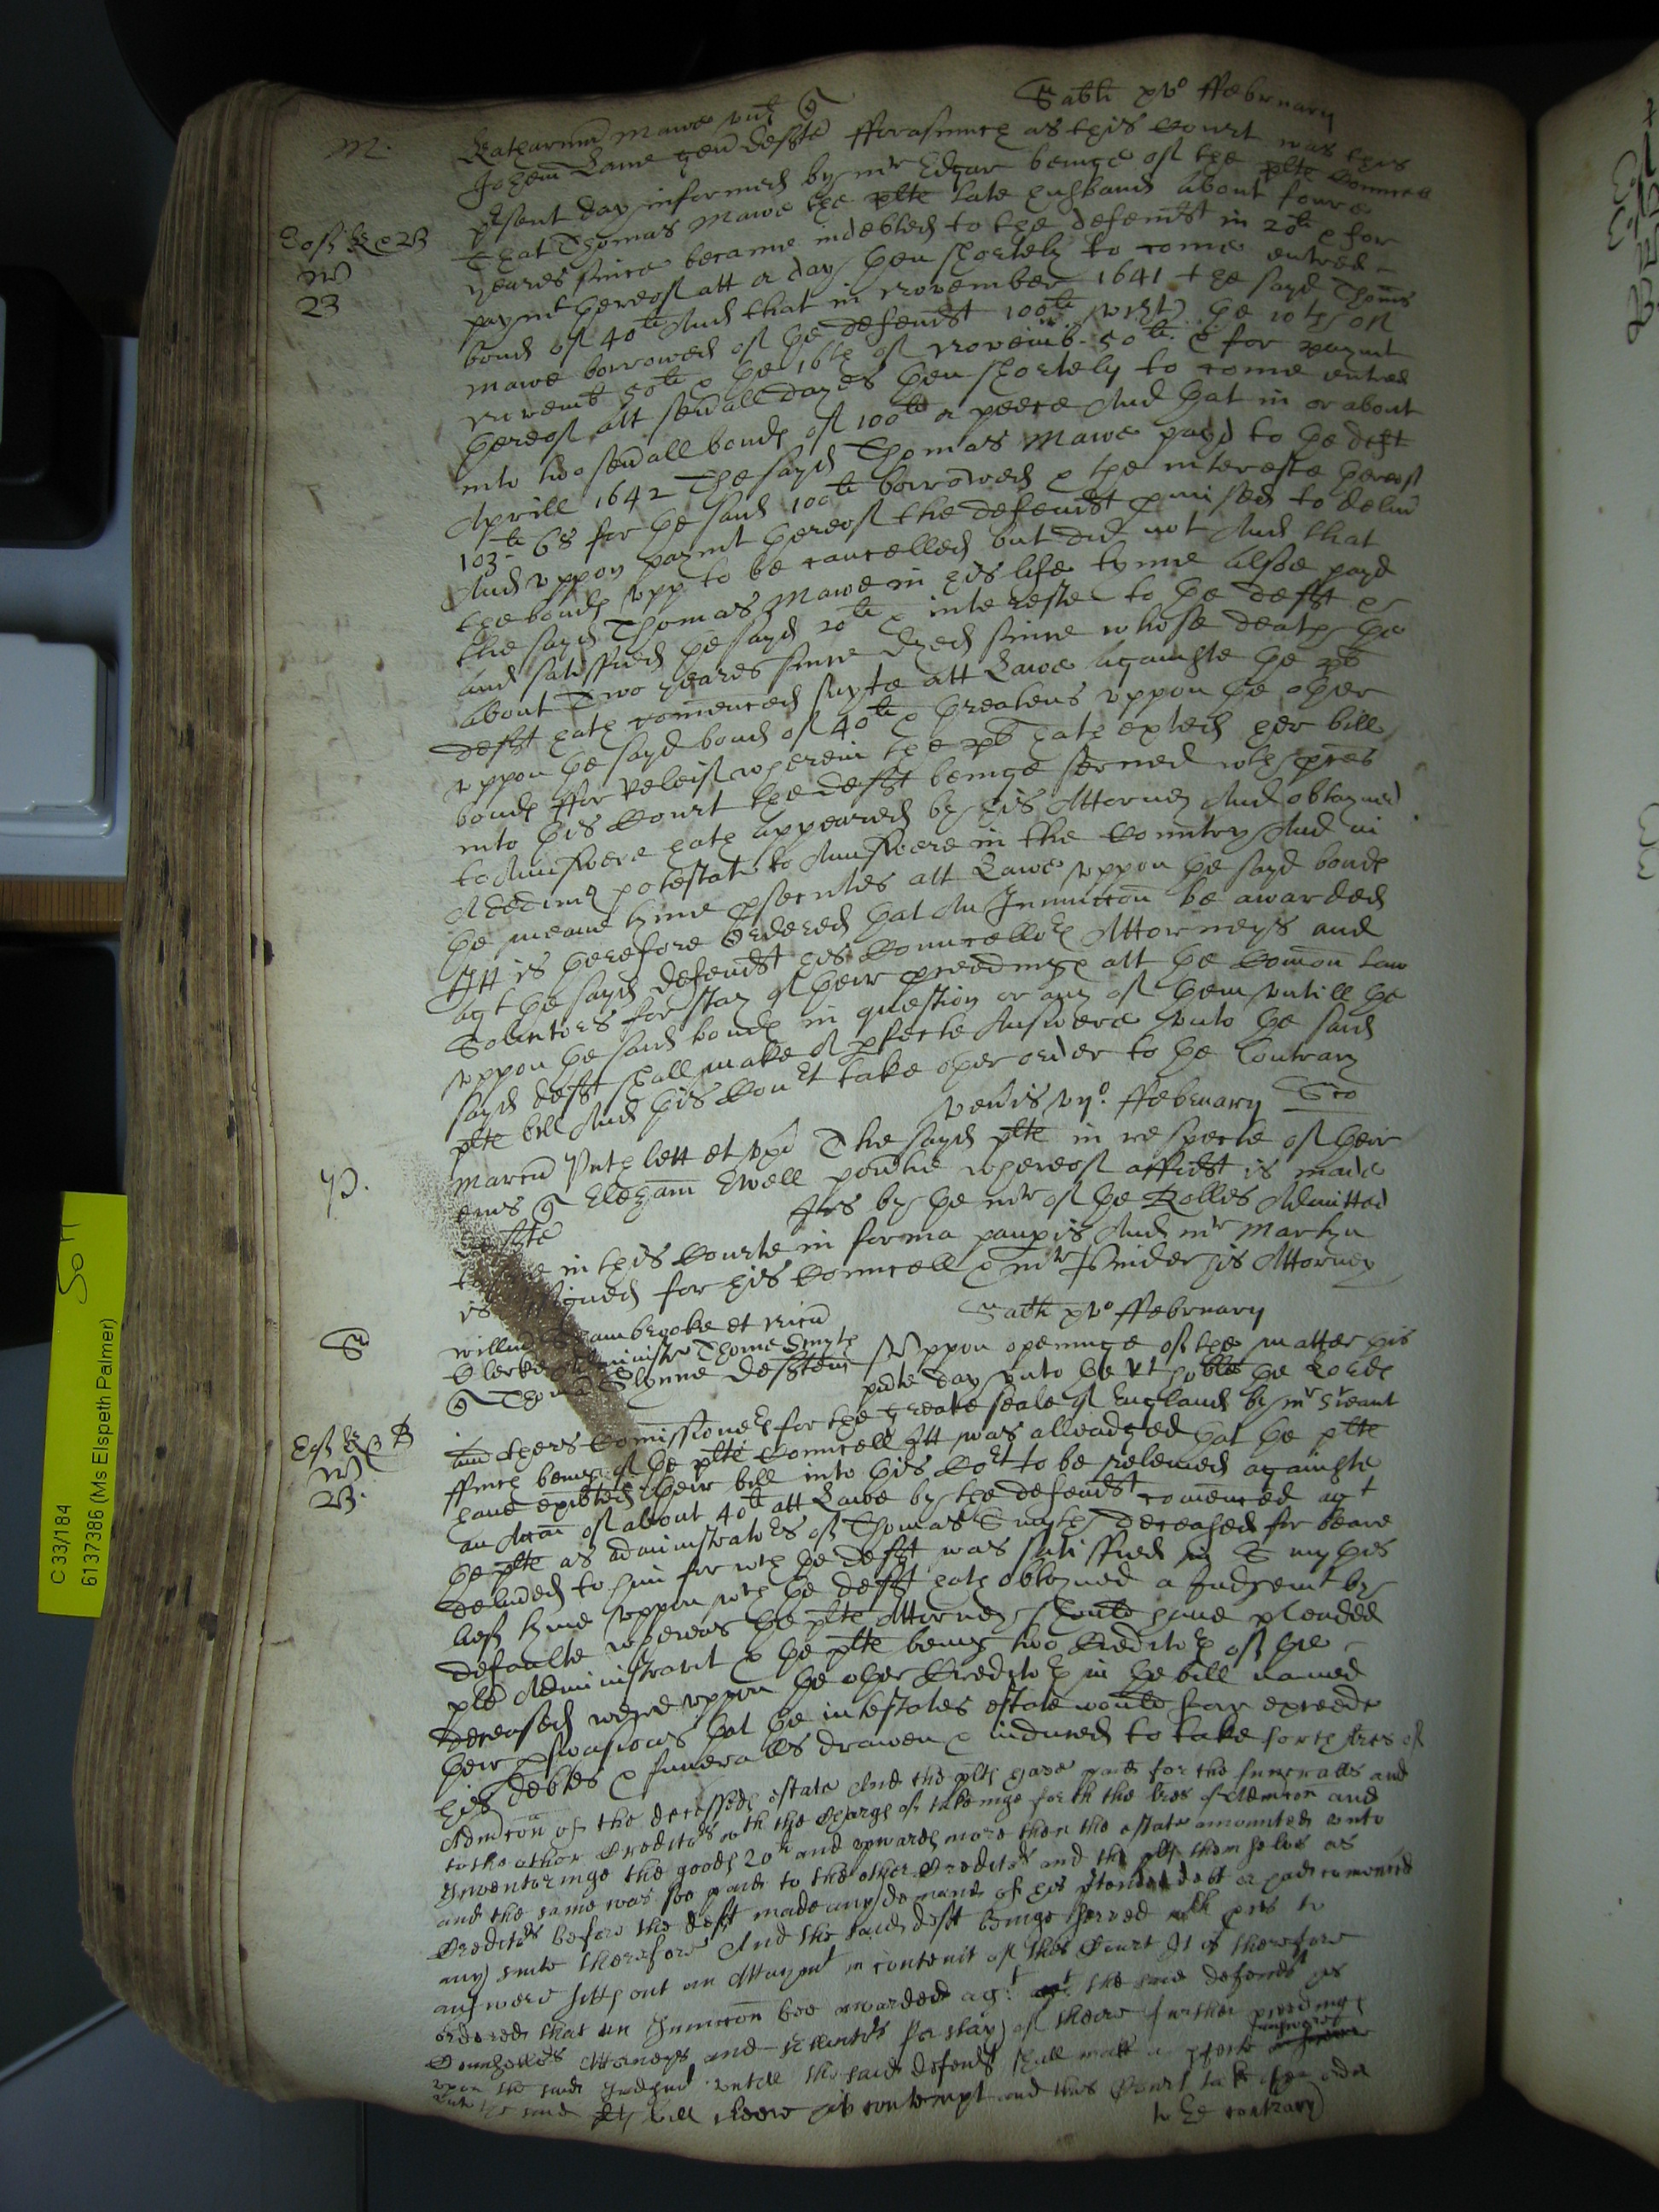 Sabti xvo ffebruary
M.
Katharina Mawe vid
Johem Lane gen defte fforasmuch as this Court was this
present day informed by mr Edgar beinge of the plte Councell
That Thomas Mawe the plte late husband about foure
yeares since became indebted to the defendt in 20li & for
paymt thereof att a day then shortely to come entred
bond of 40li And that in November 1641 the sayd Thoms
Mawe borrowed of the defendt 100li vizt the 10th of
Novemb 50li & the 16th of Novemb 50li & for paymt
thereof att severall dayes then shortely to come entred
into two severall bonds of 100li a peece And that in or about
Aprill 1642 The sayd Thomas Mawe payd to the deft
103li 6s for the said 100li borrowed & the intereste thereof
And uppon paymt thereof the defendt promised to deliver
the bonds upp to be cancelled but did not And that
the sayd Thomas Mawe in his life tyme alsoe payd
and satisfied the sayd 20li & intereste to the defft &
about Two yeares since dyed since whose death the
defft hath comenced suyte att Lawe againste the plt
uppon the sayd bond of 40li & threatens uppon the other
bonds ffor releif wherein the plt hath exhted her bill
into this Court the defft beinge served wth proces
to Aunswere hath appeared by his Attorney And obtayned
A Dedimus potestat to Aunswere in the Countrey And in
the meane tyme prosecutes att Lawe uppon the sayd bonds
Itt is therefore Ordered that An Iniunccon be awarded
agt the sayd defendt his Councellors Attorneys and
Solicitors for stay of their proceedings att the Comon law
uppon the said bonds in question or any of them untill the
sayd defft shall make A perfecte Answere unto the said
plte bill And this Court take other order to the Contrary
Veneris vijo ffebruary
P.
The sayd plte in respecte of their
povertie whereof affidt is made
by the mr of the Rolles Admitted
in this Courte in forma pauperis And mr Martyn
is assigned for his Councell & mr Pinder his Attorney
Sabti xvo ffebruary
S
Uppon openinge of the matter this
psente day unto the rt hoble the Lords
and others Comissioners for the greate seale of England by mr Serjeant
ffinch beinge of the plte Councell Itt was alleadged that the plte
have exibited their bill into this Court to be releived againste
an Accon of about 40li att Lawe by the defendt comenced agt
the plte as administrators of Thomas Smyth deceased for beare
delivered to him for wch the defft was satisfied in Smythes
life tyme uppon wch the defft hath obtayned a Judgemt by
defaulte whereas the plte Attorney should have pleaded
plene Administravit & the plte being two Creditors of the
deceased were uppon the other Creditors in the bill named
their perswasions that the intestates estate would far exceede
his debtes & funeralls drawen & induced to take forth lres of
Admcon of the deceased estate And the plts have paid for the funeralls and
to the other Creditors with the Charge of takeinge forth the lres of Admcon and
Inventoringe the goods 20li and upwards more then the estate amounted unto
and the same was soe paid to the other Creditors and the plts themselves as
Creditors before the deft made any demand of his ptended debt or had comenced
any suite therefore And the said deft beinge served with proces to
answere sitts out an Attachmt in contempt of this Court It is therefore
ordered that an Iniunccon bee awarded agt the said defendt his
Counsellors Attorneys and sollicitors for stay of theire further proceedings
upon the said Judgmt untill the said defendt shall make a perfecte answere
unto the said plts bill cleere his contempt and this Court take other order
to the contrary
C 33/184
6137386 (Ms Elspeth Palmer)